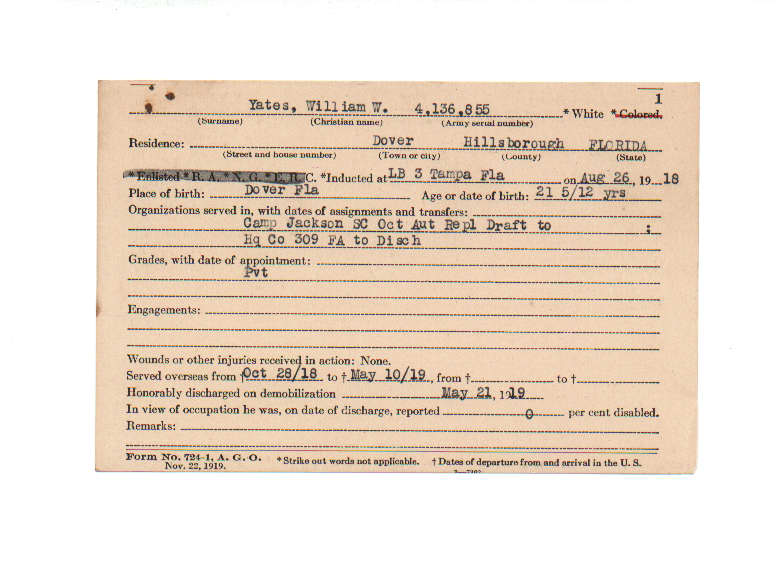 1
Yates, William W. 4,136,855 * White * Colored.
(Surname) (Christian name) (Army serial number)
Residence: Dover Hillsborough FLORIDA
(Street and house number) (Town or city) (County) (State)
* Enlisted * R. A. * N. G. * E. R. C. * Inducted at LB 3 Tampa Fla on Aug 26, 19 18
Place of birth: Dover Fla Age or date of birth: 21 5/12 yrs
Organizations served in, with dates of assignments and transfers:
Camp Jackson SC Oct Aut Repl Draft to ;
Hq Co 309 FA to Disch
Grades, with date of appointment:
Pvt
Engagements:
Wounds or other injuries received in action: None.
Served overseas from † Oct 28/18 to † May 10/19, from † to †
Honorably discharged on demobilization May 21, 1919
In view of occupation he was, on date of discharge, reported 0 per cent disabled.
Remarks:
Form No. 724-1, A. G. O. * Strike out words not applicable. † Dates of departure from and arrival in the U. S.
Nov. 22, 1919.